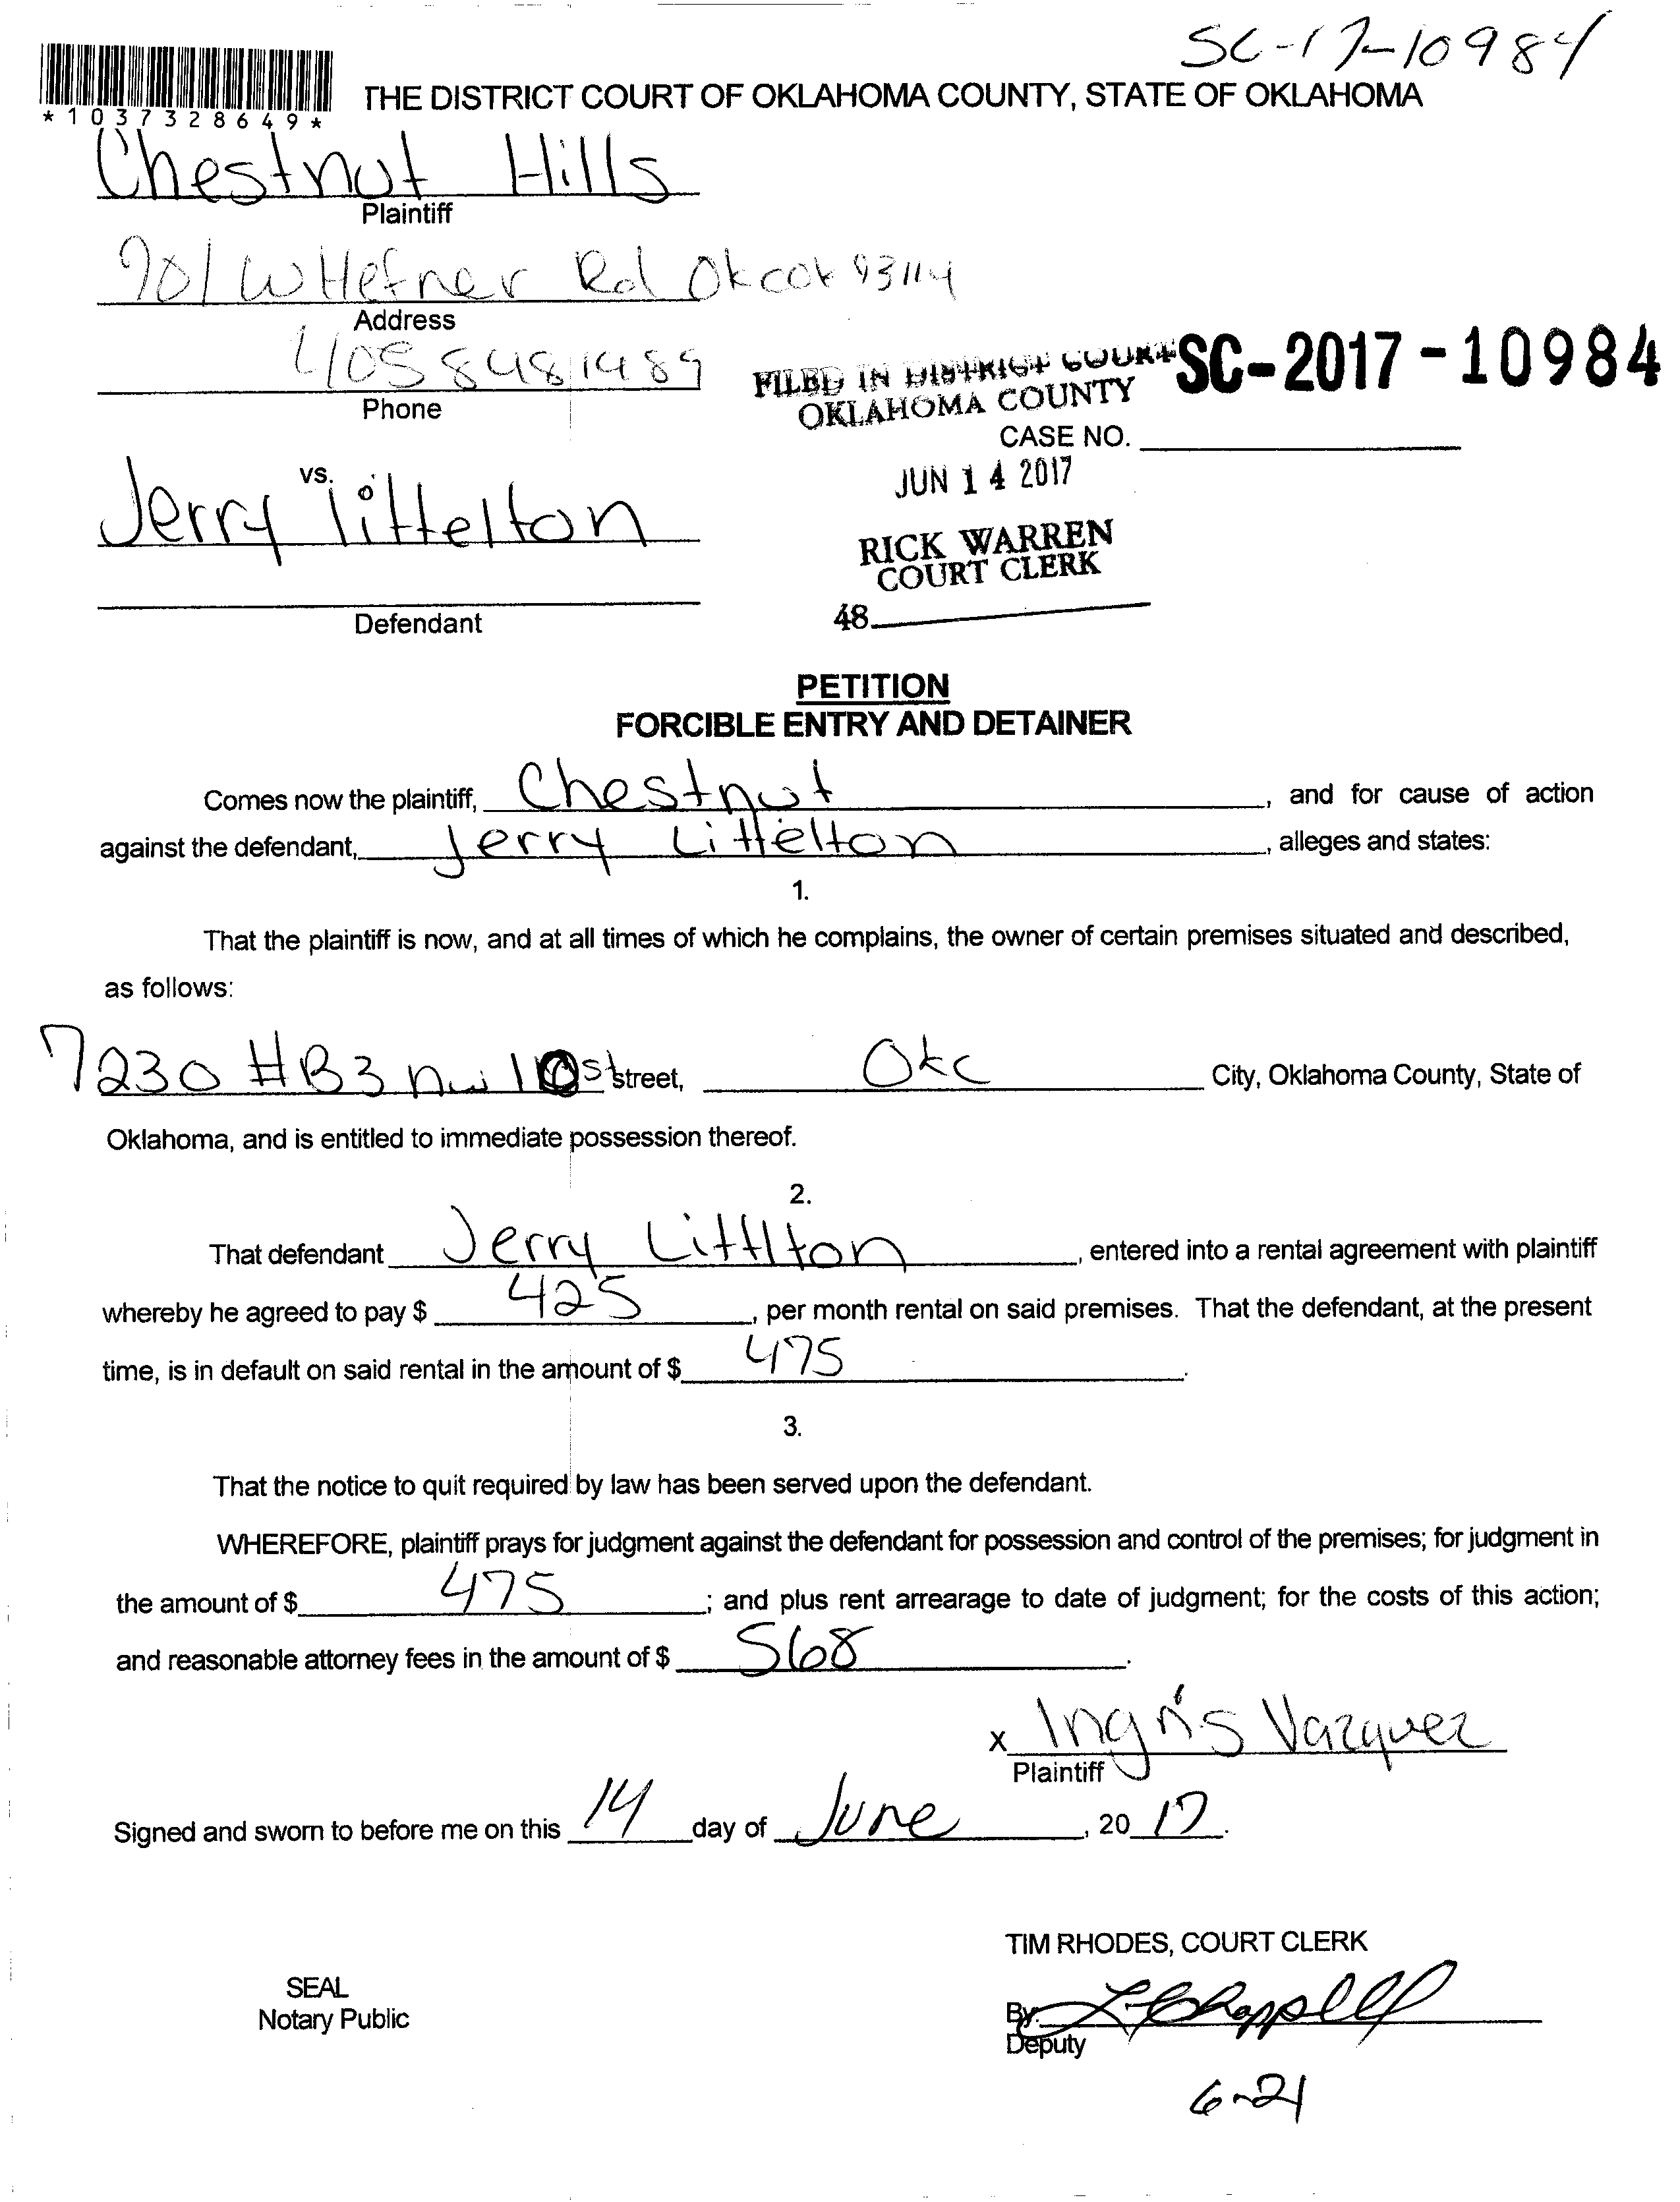 SC-17-10984
*1037328649*
THE DISTRICT COURT OF OKLAHOMA COUNTY, STATE OF OKLAHOMA
Chestnut Hills
Plaintiff
901 W Hefner Rd Okc ok 93114
Address
405 848 1489
Phone
FILED IN DISTRICT COURT
OKLAHOMA COUNTY
SC-2017-10984
CASE NO.
JUN 14 2017
vs.
Jerry littelton
RICK WARREN
COURT CLERK
48
Defendant
PETITION
FORCIBLE ENTRY AND DETAINER
Comes now the plaintiff, Chestnut, and for cause of action
against the defendant, Jerry Littelton, alleges and states:
1.
That the plaintiff is now, and at all times of which he complains, the owner of certain premises situated and described,
as follows:
7230 #B3 nw 10 st street, Okc City, Oklahoma County, State of
Oklahoma, and is entitled to immediate possession thereof.
2.
That defendant Jerry Littlton, entered into a rental agreement with plaintiff
whereby he agreed to pay $ 425, per month rental on said premises. That the defendant, at the present
time, is in default on said rental in the amount of $ 475.
3.
That the notice to quit required by law has been served upon the defendant.
WHEREFORE, plaintiff prays for judgment against the defendant for possession and control of the premises; for judgment in
the amount of $ 475; and plus rent arrearage to date of judgment; for the costs of this action;
and reasonable attorney fees in the amount of $ 568.
x Ingris Vazquez
Plaintiff
Signed and sworn to before me on this 14 day of June, 20 17.
TIM RHODES, COURT CLERK
SEAL
Notary Public
By: L Chappell
Deputy
6-21